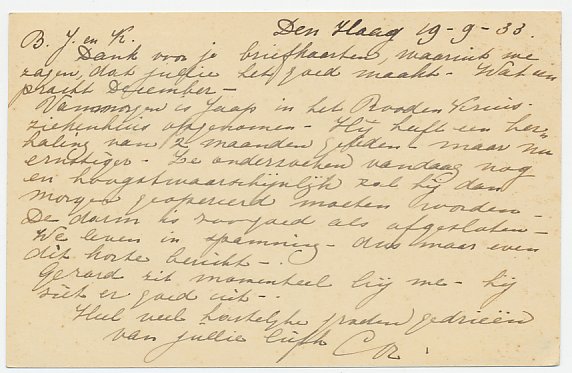 Den Haag 19-9-33.
B. J. en K.
Dank voor je briefkaarten, waaruit we
zagen, dat jullie het goed maakt - Wat een
pracht September -
Vanmorgen is Jaap in het Rooden Kruis-
ziekenhuis opgenomen - Hij heeft een her-
haling van 2 maanden geleden - maar nu
ernstiger - Ze onderzoeken vandaag nog
en hoogstwaarschijnlijk zal hij dan
morgen geopereerd moeten worden -
De darm is zoogoed als afgesloten -
We leven in spanning - dus maar even
dit korte bericht - .
Gerard zit momenteel bij me - hij
ziet er goed uit - .
Heel veel hartelijke groeten gedrieën
van jullie liefh